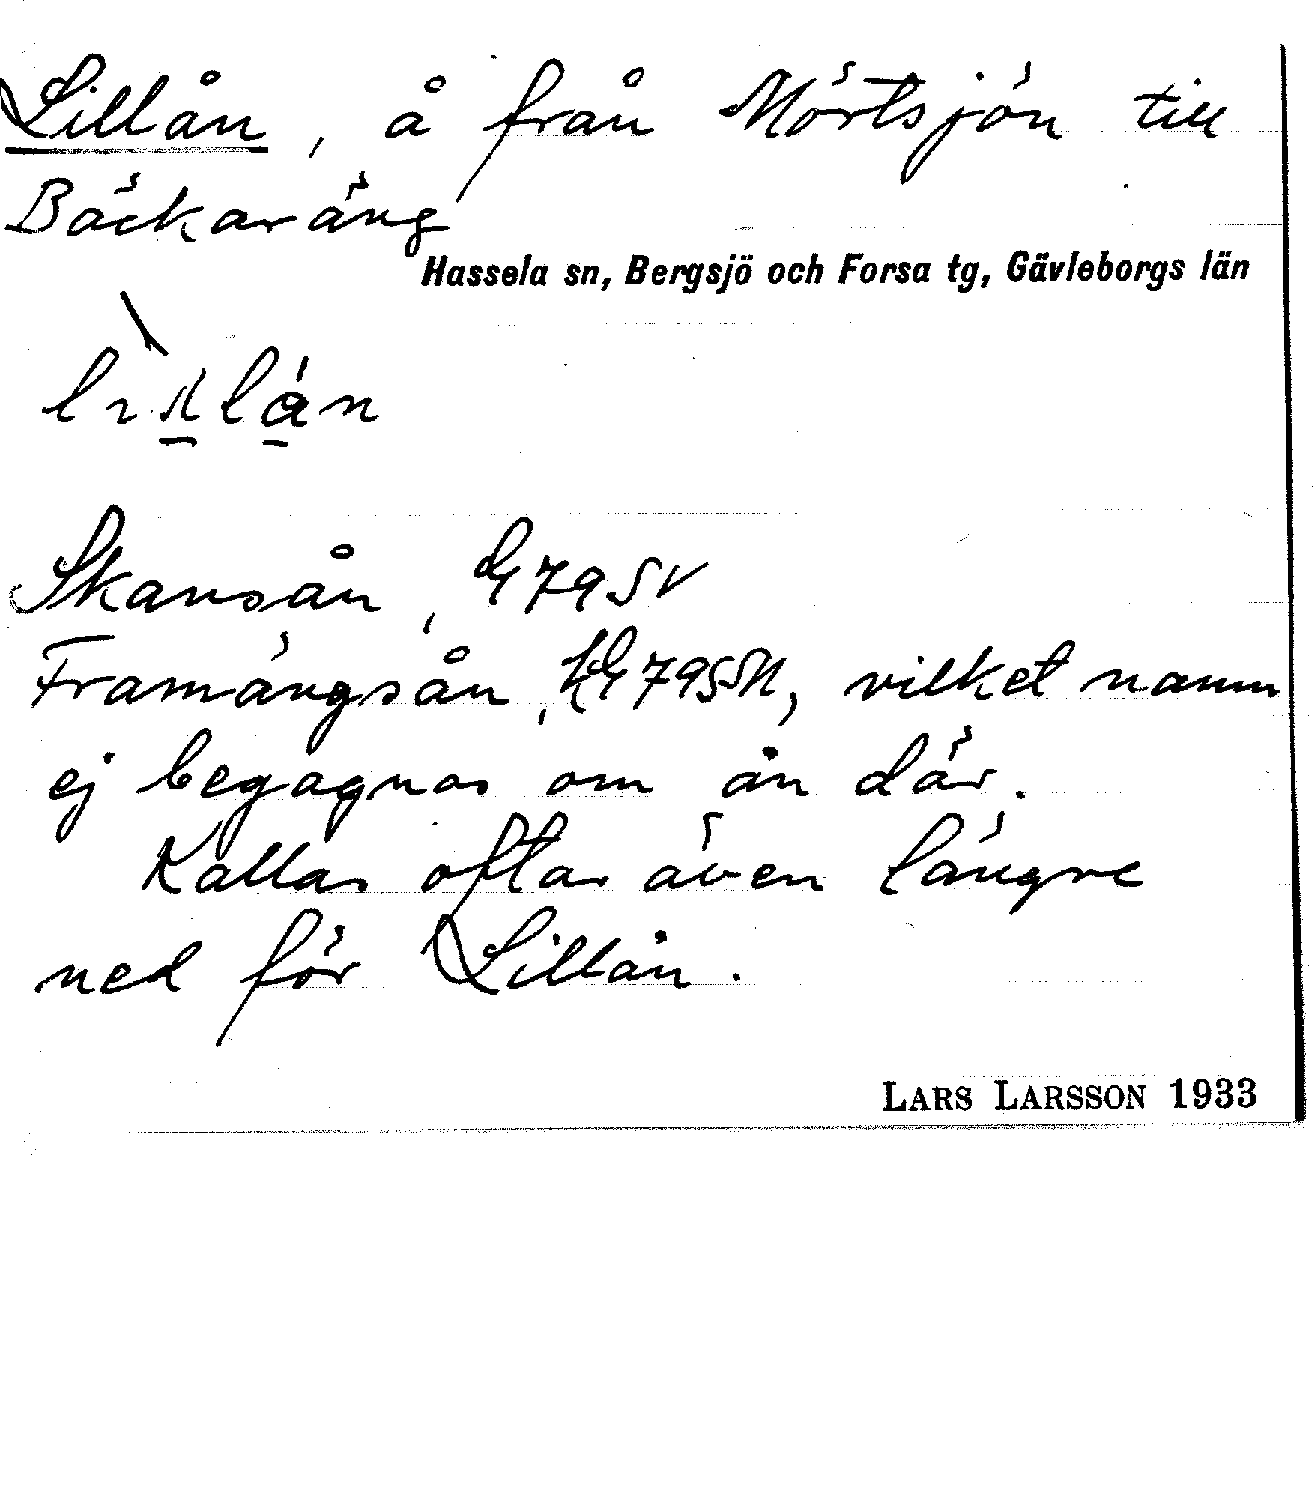 Lillån, å från Mörtsjön till
Bäckaräng
Hassela sn, Bergsjö och Forsa tg, Gävleborgs län
Skansån, G79SV
Framängsån, G79SSV, vilket namn
ej begagnas om ån där.
Kallas oftas även längre
ned för Lillån.
LARS LARSSON 1933